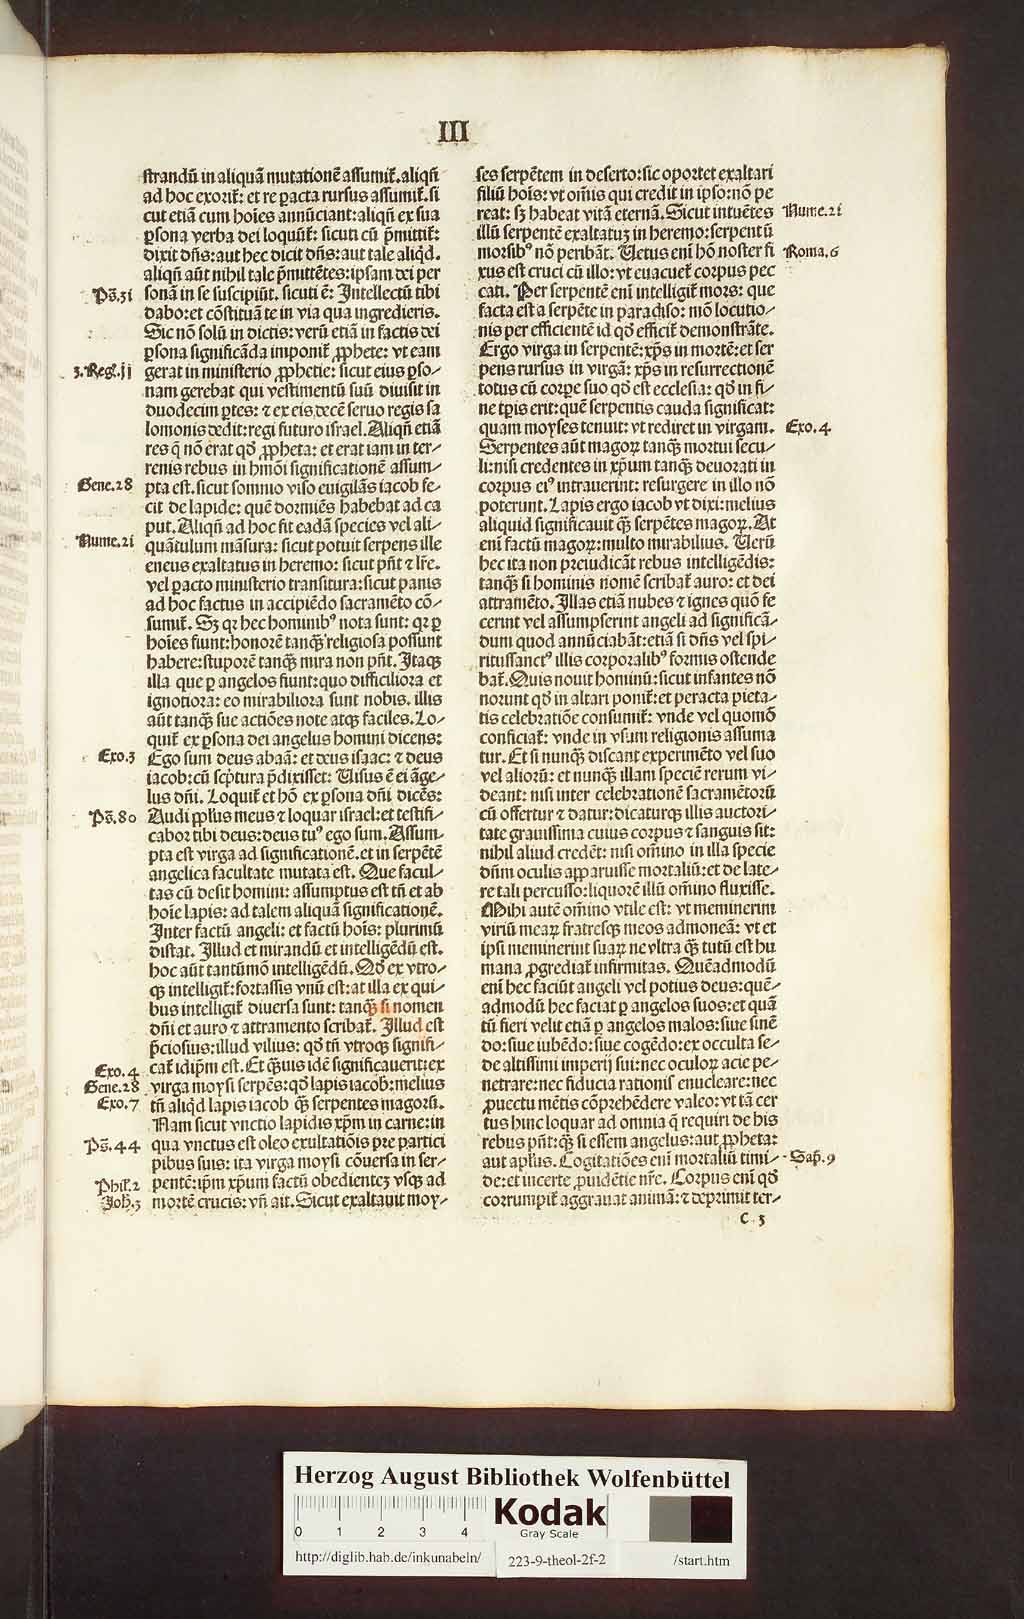 III
ſtrandū in aliquā mutationē aſſumit̄. aliqn̄
ad hoc exorit̄: et re ꝑacta rurſus aſſumit̄. ſi
cut etiā cum hoīes annūciant: aliqn̄ ex ſua
ꝑſona verba dei loquūt̄: ſicuti cū p̄mittit̄:
dixit dn̄s: aut hec dicit dn̄s: aut tale aliqd̄.
aliqn̄ aūt nihil tale p̄mittētes: ipſam dei per
Pſ̄.31
ſonā in ſe ſuſcipiūt. ſicuti ē: Intellectū tibi
dabo: et cōſtituā te in via qua ingredieris.
Sic nō ſolū in dictis: verū etiā in factis dei
ꝑſona ſignificāda imponit̄ ꝓphete: vt eam
3. Reg. 11
gerat in miniſterio ꝓphetie: ſicut eius ꝑſo-
nam gerebat qui veſtimentū ſuū diuiſit in
duodecim ꝑtes: ⁊ ex eis decē ſeruo regis ſa
lomonis dedit: regi futuro iſrael. Aliqn̄ etiā
res q̄ nō erat qd̄ ꝓpheta: et erat iam in ter-
renis rebus in hmōi ſignificationē aſſum-
Gene.28
pta eſt. ſicut ſomnio viſo euigilās iacob fe-
cit de lapide: quē dormiēs habebat ad ca
put. Aliqn̄ ad hoc fit eadā ſpecies vel ali-
Nume.21
quātulum māſura: ſicut potuit ſerpens ille
eneus exaltatus in heremo: ſicut pn̄t ⁊ lr̄e.
vel ꝑacto miniſterio tranſitura: ſicut panis
ad hoc factus in accipiēdo ſacramēto cō-
ſumit̄. Sꝫ qꝛ hec hominibꝰ nota ſunt: qꝛ ꝑ
hoīes fiunt: honorē tanqꝫ religioſa poſſunt
habere: ſtuporē tanqꝫ mira non pn̄t. Itaqꝫ
illa que ꝑ angelos fiunt: quo difficiliora et
ignotiora: eo mirabiliora ſunt nobis. illis
aūt tanqꝫ ſue actiōes note atqꝫ faciles. Lo-
quit̄ ex ꝑſona dei angelus homini dicens:
Exo.3
Ego ſum deus abaā: et deus iſaac: ⁊ deus
iacob: cū ſcp̄tura p̄dixiſſet: Uiſus ē ei āge-
lus dn̄i. Loquit̄ et hō ex ꝑſona dn̄i dicēs:
Pſ̄.80
Audi ppl̄us meus ⁊ loquar iſrael: et teſtifi-
cabor tibi deus: deus tuꝰ ego ſum. Aſſum-
pta eſt virga ad ſignificationē. et in ſerpētē
angelica facultate mutata eſt. Que facul-
tas cū deſit homini: aſſumptus eſt tn̄ et ab
hoīe lapis: ad talem aliquā ſignificationē.
Inter factū angeli: et factū hoīs: plurimū
diſtat. Illud et mirandū et intelligēdū eſt.
hoc aūt tantūmō intelligēdū. Qd̄ ex vtro-
qꝫ intelligit̄: fortaſſis vnū eſt: at illa ex qui-
bus intelligit̄ diuerſa ſunt: tanqꝫ ſi nomen
dn̄i et auro ⁊ attramento ſcribat̄. Illud eſt
p̄cioſius: illud vilius: qd̄ tn̄ vtroqꝫ ſignifi-
Exo.4
cat̄ idip̄m eſt. Et qꝫuis idē ſignificauerit: ex
Gene.28
virga moyſi ſerpēs: qd̄ lapis iacob: melius
Exo.7
tn̄ aliqd̄ lapis iacob qꝫ ſerpentes magorū.
Nam ſicut vnctio lapidis xp̄m in carne: in
Pſ̄.44
qua vnctus eſt oleo exultatiōis pre partici
pibus ſuis: ita virga moyſi cōuerſa in ſer-
Phil̓.2
pentē: ip̄m xp̄um factū obedienteꝫ vſqꝫ ad
Joh̓.3
mortē crucis: vn̄ ait. Sicut exaltauit moy-
ſes ſerpētem in deſerto: ſic oportet exaltari
filiū hoīs: vt om̄is qui credit in ipſo: nō pe
Nume.21
reat: ſꝫ habeat vitā eternā. Sicut intuētes
illū ſerpentē exaltatuꝫ in heremo: ſerpentū
Roma.6
morſibꝰ nō peribāt. Uetus enī hō noſter fi
xus eſt cruci cū illo: vt euacuet̄ corpus pec
cati. Per ſerpentē enī intelligit̄ mors: que
facta eſt a ſerpēte in paradiſo: mō locutio-
nis per efficientē id qd̄ efficit̄ demonſtrāte.
Ergo virga in ſerpentē: xp̄s in mortē: et ſer
pens rurſus in virgā: xp̄s in reſurrectionē
totus cū corꝑe ſuo qd̄ eſt eccleſia: qd̄ in fi-
ne tp̄is erit: quē ſerpentis cauda ſignificat:
Exo.4
quam moyſes tenuit: vt rediret in virgam.
Serpentes aūt magoꝝ tanqꝫ mortui ſecu-
li: niſi credentes in xp̄um tanqꝫ deuorati in
corpus eiꝰ intrauerint: reſurgere in illo nō
poterunt. Lapis ergo iacob vt dixi: melius
aliquid ſignificauit qꝫ ſerpētes magoꝝ. At
enī factū magoꝝ: multo mirabilius. Uerū
hec ita non preiudicāt rebus intelligēdis:
tanqꝫ ſi hominis nomē ſcribat̄ auro: et dei
attramēto. Illas etiā nubes ⁊ ignes quō fe
cerint vel aſſumpſerint angeli ad ſignificā-
dum quod annūciabāt: etiā ſi dn̄s vel ſpi-
rituſſanctꝰ illis corporalibꝰ formis oſtende
bat̄. Quis nouit hominū: ſicut infantes nō
norunt qd̄ in altari ponit̄: et peracta pieta-
tis celebratiōe conſumit̄: vnde vel quomō
conficiat̄: vnde in vſum religionis aſſuma
tur. Et ſi nunqꝫ diſcant experimēto vel ſuo
vel aliorū: et nunqꝫ illam ſpeciē rerum vi-
deant: niſi inter celebrationē ſacramētorū
cū offertur ⁊ datur: dicaturqꝫ illis auctori-
tate grauiſſima cuius corpus ⁊ ſanguis ſit:
nihil aliud credēt: niſi om̄ino in illa ſpecie
dn̄m oculis apparuiſſe mortaliū: et de late-
re tali percuſſo: liquorē illū om̄ino fluxiſſe.
Mihi autē om̄ino vtile eſt: vt meminerim
viriū meaꝝ fratreſqꝫ meos admoneā: vt et
ipſi meminerint ſuaꝝ ne vltra qꝫ tutū eſt hu
mana ꝓgrediat̄ infirmitas. Quēadmodū
enī hec faciūt angeli vel potius deus: quē-
admodū hec faciat ꝑ angelos ſuos: et quā
tū fieri velit etiā ꝑ angelos malos: ſiue ſinē
do: ſiue iubēdo: ſiue cogēdo: ex occulta ſe-
de altiſſimi imperij ſui: nec oculoꝝ acie pe-
netrare: nec fiducia rationis enucleare: nec
ꝓuectu mētis cōprehēdere valeo: vt tā cer
tus hinc loquar ad omnia q̄ requiri de his
rebus pn̄t: qꝫ ſi eſſem angelus: aut ꝓpheta:
Sap̄.9
aut apl̄us. Cogitatiōes enī mortaliū timi-
de: et incerte ꝓuidētie nr̄e. Corpus enī qd̄
corrumpit̄ aggrauat animā: ⁊ deprimit ter-
C 3
Herzog August Bibliothek Wolfenbüttel
0 1 2 3 4
Kodak
Gray Scale
http://diglib.hab.de/inkunabeln/ 223-9-theol-2f-2 /start.htm